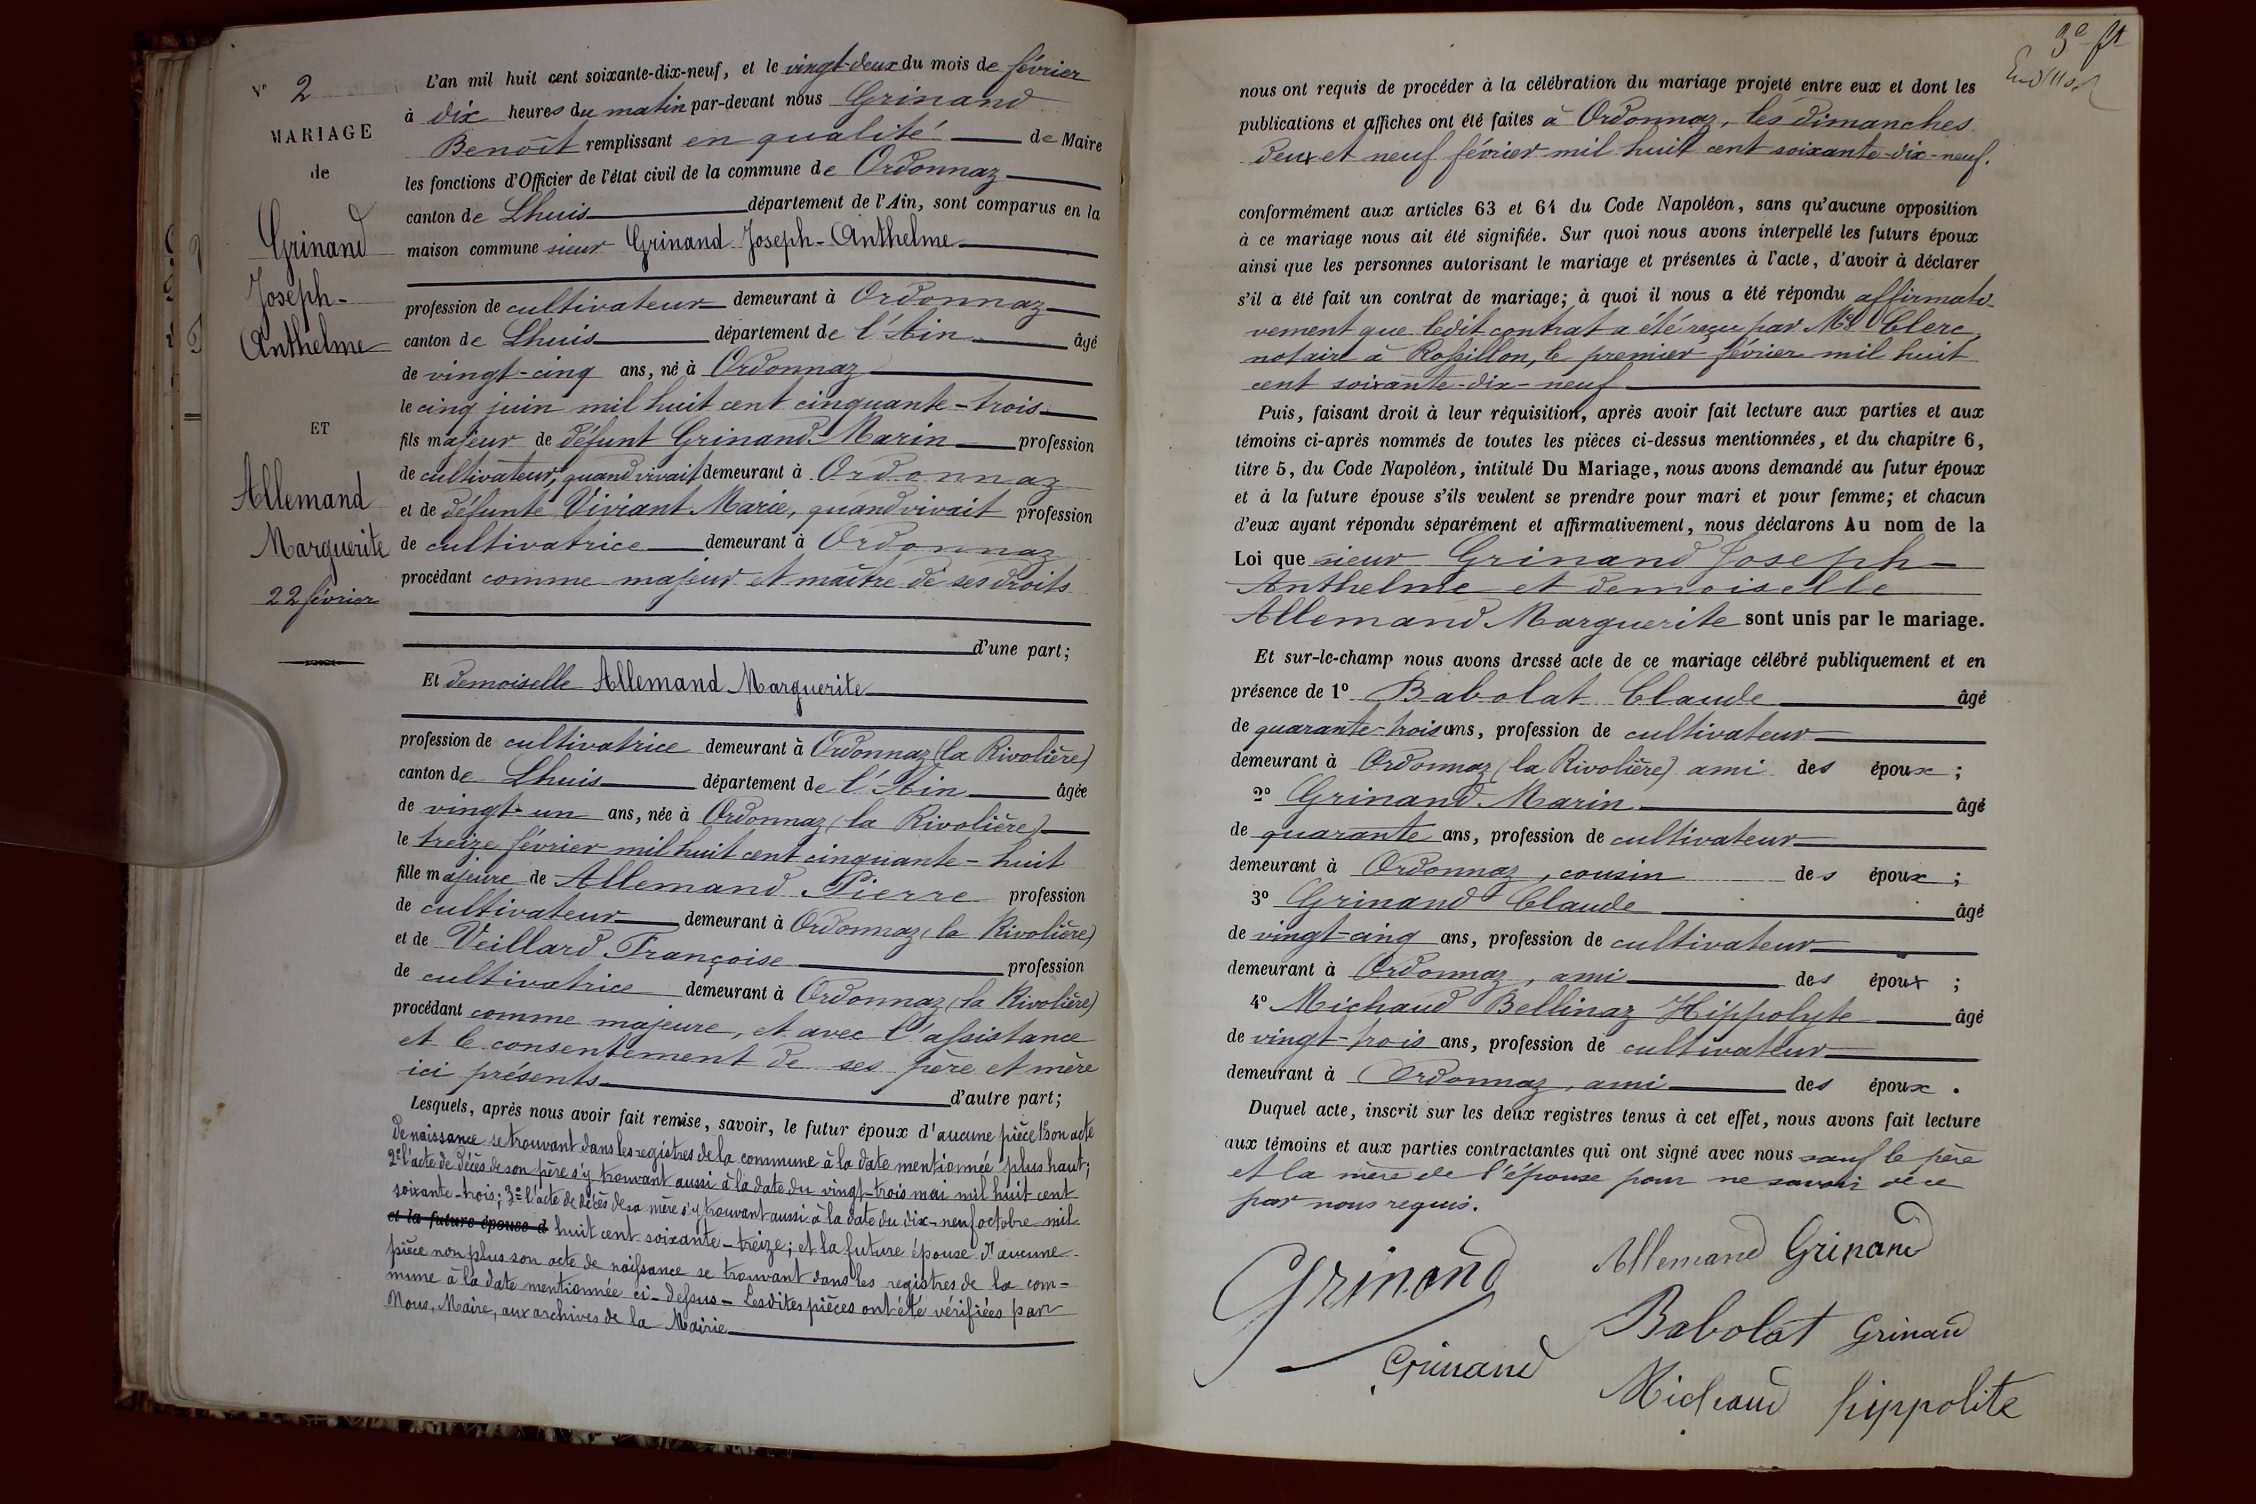 N° 2
MARIAGE
de
Grinand
Joseph-
Anthelme
ET
Allemand
Marguerite
22 février
L'an mil huit cent soixante-dix-neuf, et le vingt-deux du mois de février
à dix heures du matin par-devant nous Grinand
Benoît remplissant en qualité de Maire
les fonctions d'Officier de l'état civil de la commune de Ordonnaz
canton de Lhuis département de l'Ain, sont comparus en la
maison commune sieur Grinand Joseph-Anthelme
profession de cultivateur demeurant à Ordonnaz
canton de Lhuis département de l'Ain âgé
de vingt-cinq ans, né à Ordonnaz
le cinq juin mil huit cent cinquante-trois
fils majeur de défunt Grinand Marin profession
de cultivateur, quand vivait demeurant à Ordonnaz
et de défunte Viviant Marie, quand vivait profession
de cultivatrice demeurant à Ordonnaz
procédant comme majeur et maître de ses droits
d'une part;
Et demoiselle Allemand Marguerite
profession de cultivatrice demeurant à Ordonnaz (la Rivolière)
canton de Lhuis département de l'Ain âgée
de vingt-un ans, née à Ordonnaz (la Rivolière)
le treize février mil huit cent cinquante-huit
fille majeure de Allemand Pierre profession
de cultivateur demeurant à Ordonnaz (la Rivolière)
et de Veillard Françoise profession
de cultivatrice demeurant à Ordonnaz (la Rivolière)
procédant comme majeure, et avec l'assistance
et le consentement de ses père et mère
ici présents d'autre part;
Lesquels, après nous avoir fait remise, savoir, le futur époux d'aucune pièce 1° son acte
de naissance se trouvant dans les registres de la commune à la date mentionnée plus haut;
2° l'acte de décès de son père s'y trouvant aussi à la date du vingt-trois mai mil huit cent
soixante-trois; 3° l'acte de décès de sa mère s'y trouvant aussi à la date du dix-neuf octobre mil
et la future épouse d huit cent soixante-treize; et la future épouse d'aucune
pièce non plus son acte de naissance se trouvant dans les registres de la com-
mune à la date mentionnée ci-dessus - Lesdites pièces ont été vérifiées par
Nous, Maire, aux archives de la Mairie
3e
nous ont requis de procéder à la célébration du mariage projeté entre eux et dont les
publications et affiches ont été faites à Ordonnaz, les dimanches
deux et neuf février mil huit cent soixante-dix-neuf.
conformément aux articles 63 et 64 du Code Napoléon, sans qu'aucune opposition
à ce mariage nous ait été signifiée. Sur quoi nous avons interpellé les futurs époux
ainsi que les personnes autorisant le mariage et présentes à l'acte, d'avoir à déclarer
s'il a été fait un contrat de mariage; à quoi il nous a été répondu affirmati-
vement que ledit contrat a été reçu par Me Clerc
notaire à Rossillon, le premier février mil huit
cent soixante-dix-neuf
Puis, faisant droit à leur réquisition, après avoir fait lecture aux parties et aux
témoins ci-après nommés de toutes les pièces ci-dessus mentionnées, et du chapitre 6,
titre 5, du Code Napoléon, intitulé Du Mariage, nous avons demandé au futur époux
et à la future épouse s'ils veulent se prendre pour mari et pour femme; et chacun
d'eux ayant répondu séparément et affirmativement, nous déclarons Au nom de la
Loi que sieur Grinand Joseph-
Anthelme et demoiselle
Allemand Marguerite sont unis par le mariage.
Et sur-le-champ nous avons dressé acte de ce mariage célébré publiquement et en
présence de 1° Babolat Claude âgé
de quarante-trois ans, profession de cultivateur
demeurant à Ordonnaz (la Rivolière) ami des époux ;
2° Grinand Marin âgé
de quarante ans, profession de cultivateur
demeurant à Ordonnaz, cousin des époux ;
3° Grinand Claude âgé
de vingt-cinq ans, profession de cultivateur
demeurant à Ordonnaz, ami des époux ;
4° Michaud Bellinaz Hippolyte âgé
de vingt-trois ans, profession de cultivateur
demeurant à Ordonnaz, ami des époux .
Duquel acte, inscrit sur les deux registres tenus à cet effet, nous avons fait lecture
aux témoins et aux parties contractantes qui ont signé avec nous sauf le père
et la mère de l'épouse pour ne savoir de ce
par nous requis.
Grinand
Allemand Grinand
Babolat Grinand
Grinand
Michaud hippolite